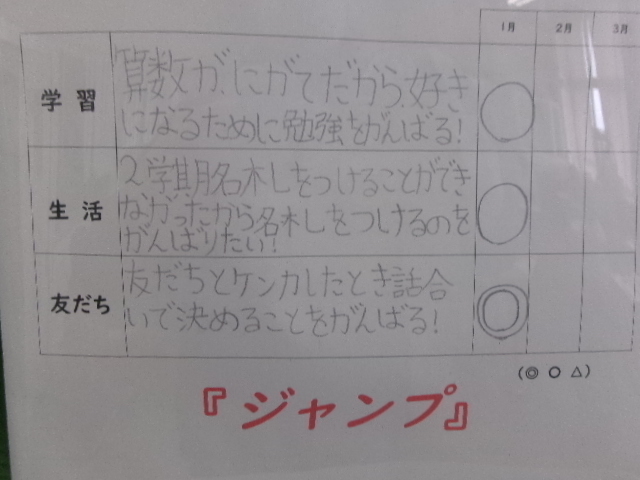 1月 2月 3月
学習
算数が、にがてだから、好き
になるために勉強をがんばる!
○
生活
2学期名札しをつけることができ
ながったから名札しをつけるのを
がんばりたい!
○
友だち
友だちとケンカしたとき話合
いで決めることをがんばる!
◎
(◎ ○ △)
『ジャンプ』